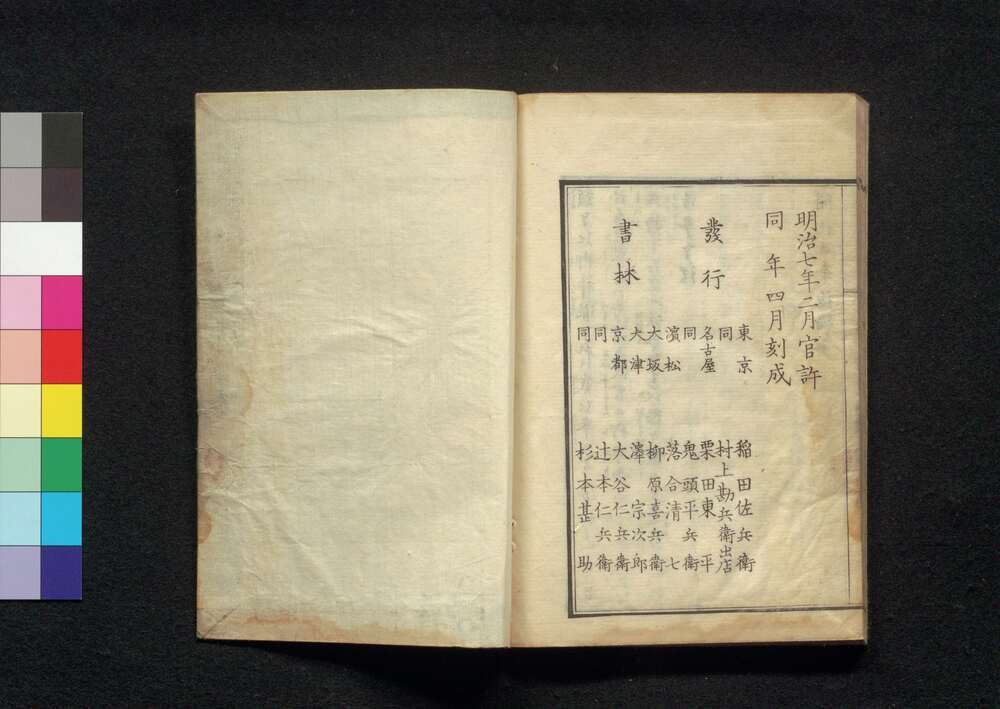 明治七年二月官許
同年四月刻成
發行
書林
東京 稲田佐兵衛
同 村上勘兵衛出店
名古屋 栗田東平
同 鬼頭平兵衛
濱松 落合清七
大坂 柳原喜兵衛
大津 澤宗次郎
京都 大谷仁兵衛
同 辻本仁兵衛
同 杉本甚助